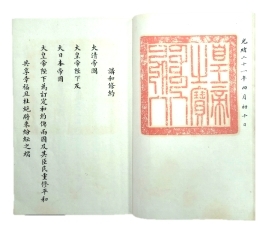 光緒二十一年四月
皇帝
之寶
講和條約
大清帝國
大皇帝陛下及
大日本帝國
大皇帝陛下為訂定和約俾兩國及其臣民重修平和
共享幸福且杜絕將來紛紜之端